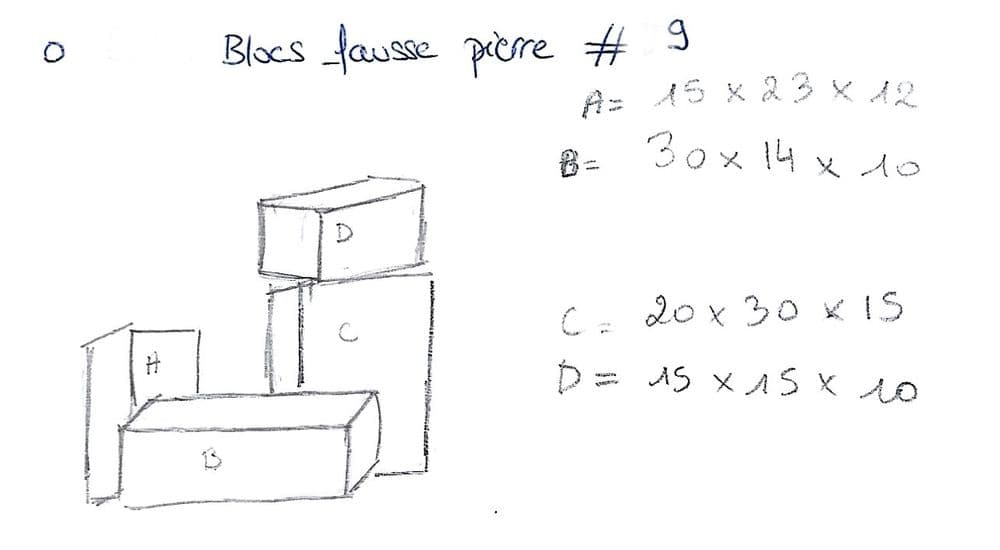 O Blocs fausse pierre # 9
A= 15 x 23 x 12
B= 30 x 14 x 10
D
C = 20 x 30 x 15
C
H
D = 15 x 15 x 10
B